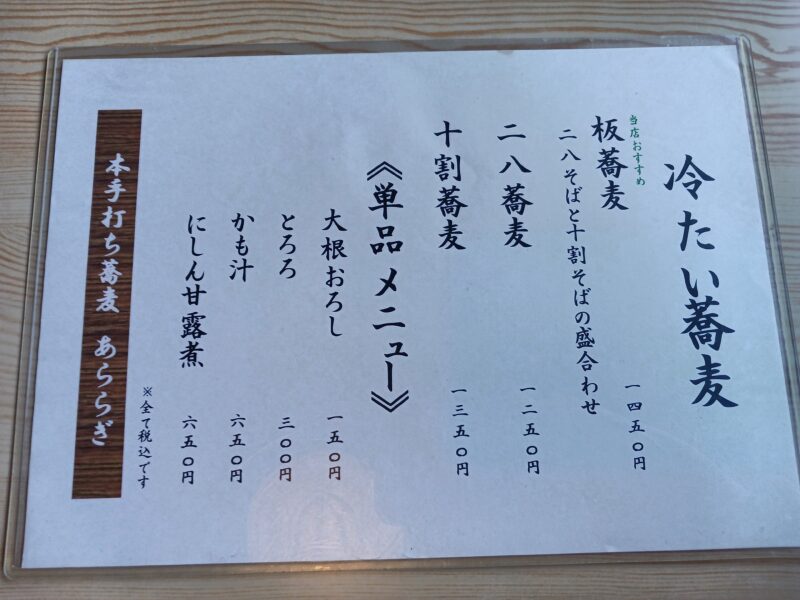 冷たい蕎麦
当店おすすめ
板蕎麦 一四五〇円
二八そばと十割そばの盛合わせ
二八蕎麦 一二五〇円
十割蕎麦 一三五〇円
《単品メニュー》
大根おろし 一五〇円
とろろ 三〇〇円
かも汁 六五〇円
にしん甘露煮 六五〇円
※全て税込です
本手打ち蕎麦 あららぎ